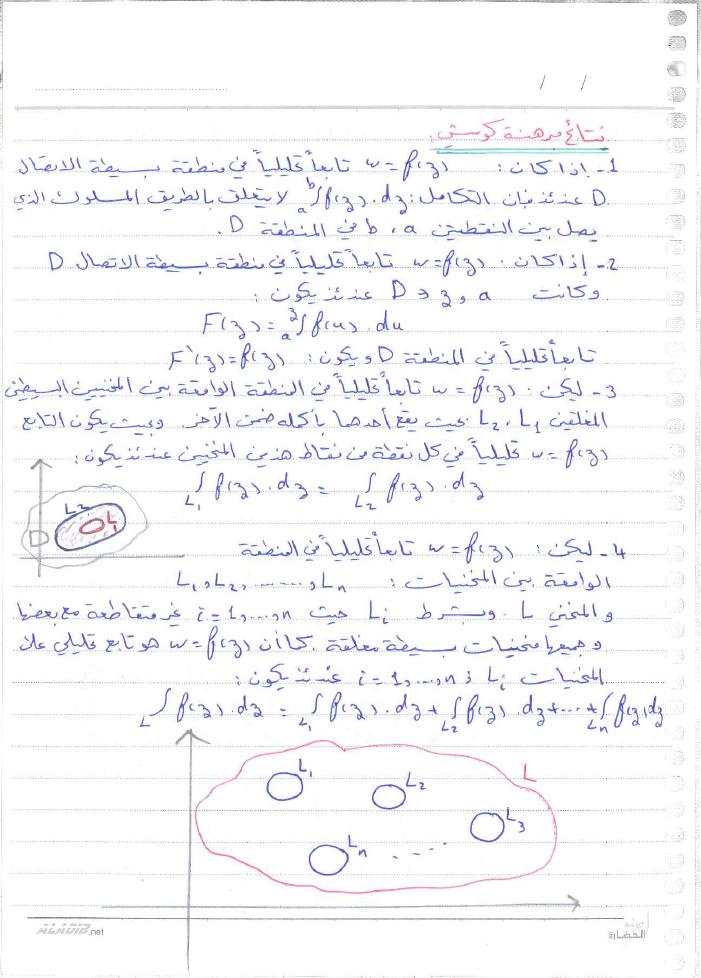 / /
نتائج مبرهنة كوشي:
1- إذا كان: w = f(z) تابعاً تحليلياً في منطقة بسيطة الاتصال
D عندئذ فإن التكامل: ₐ∫ᵇ f(z).dz لا يتعلق بالطريق المسلوك الذي
يصل بين النقطتين a ، b في المنطقة D.
2- إذا كان: w = f(z) تابعاً تحليلياً في منطقة بسيطة الاتصال D
وكانت a و z ∈ D عندئذ يكون:
F(z) = ₐ∫ᶻ f(u).du
تابعاً تحليلياً في المنطقة D ويكون: F'(z) = f(z)
3- ليكن: w = f(z) تابعاً تحليلياً في المنطقة الواقعة بين المنحنيين البسيطين
المغلقين L₁ ، L₂ بحيث يقع أحدهما بأكمله ضمن الآخر وبحيث يكون التابع
w = f(z) تحليلياً في كل نقطة من نقاط هذين المنحنيين عندئذ يكون:
∫L₁ f(z).dz = ∫L₂ f(z).dz
L₂
L₁
D
4- ليكن: w = f(z) تابعاً تحليلياً في المنطقة
الواقعة بين المنحنيات: L₁, L₂, ......, Lₙ
والمنحني L. وبشرط Lᵢ حيث i = 1,...,n غير متقاطعة مع بعضها
وجميعها منحنيات بسيطة مغلقة. كما أن w = f(z) هو تابع تحليلي على
المنحنيات Lᵢ ; i = 1,...,n عندئذ يكون:
∫L f(z).dz = ∫L₁ f(z).dz + ∫L₂ f(z).dz + ... + ∫Lₙ f(z)dz
L₁ L₂ L
L₃
Lₙ
ALADIB.net
الحضارة